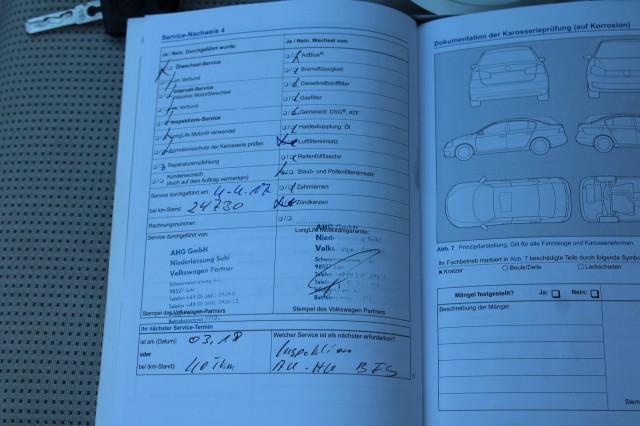 Service-Nachweis 4
Ja / Nein. Durchgeführt wurde:
Ölwechsel-Service
im Verbund
Intervall-Service
inklusive Motorölwechsel
im Verbund
Inspektions-Service
LongLife Motoröl verwendet
Korrosionsschutz der Karosserie prüfen
Reparaturempfehlung
Kundenwunsch
(auch auf dem Auftrag vermerken)
Service durchgeführt am: 4-4-17
bei km-Stand: 24730
Rechnungsnummer:
Service durchgeführt von:
AHG GmbH
Niederlassung Suhl
Volkswagen Partner
98527 Suhl
Stempel des Volkswagen-Partners
Ja / Nein. Wechsel von:
AdBlue®
Bremsflüssigkeit
Dieselkraftstofffilter
Gasfilter
Getriebeöl: DSG®, ATF
Haldexkupplung: Öl
Luftfiltereinsatz
Reifenfüllflasche
Staub- und Pollenfiltereinsatz
Zahnriemen
Zündkerzen
LongLife Mobilitätsgarantie:
AHG GmbH
Stempel des Volkswagen-Partners
Ihr nächster Service-Termin
ist am (Datum): 03.18
oder
bei (km-Stand): 40 tkm
Welcher Service ist als nächster erforderlich?
Inspektion
AU-HU BFS
Dokumentation der Karosserieprüfung (auf Korrosion)
Abb. 7 Prinzipdarstellung. Gilt für alle Fahrzeuge und Karosserieformen.
Ihr Fachbetrieb markiert in Abb. 7 beschädigte Teile durch folgende
Kratzer
Beule/Delle
Lackschaden
Mängel festgestellt? Ja: Nein:
Beschreibung der Mängel: